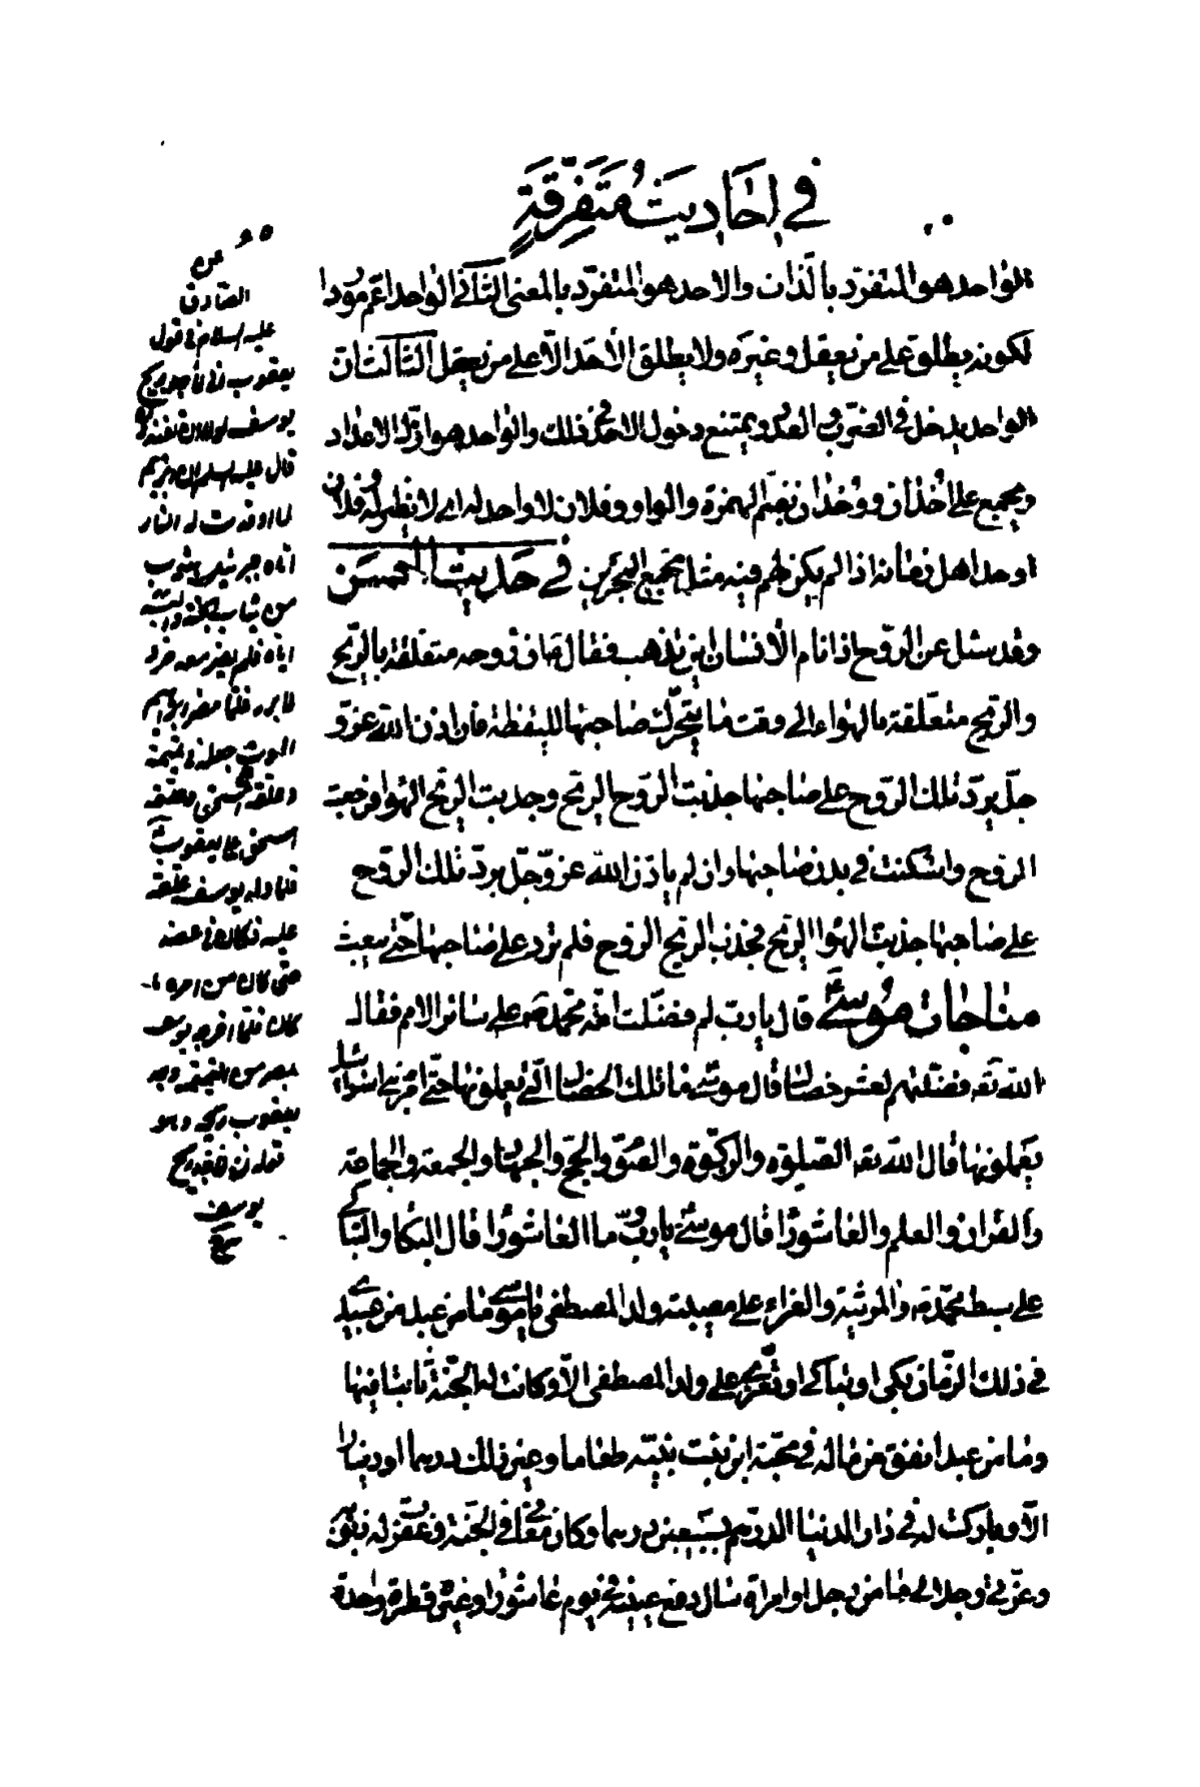 في احاديث متفرقة
الواحد هو المتفرد بالذات والاحد هو المتفرد بالمعنى الثاني الواحد اعم موردا
لكونه يطلق على من يعقل وغيره ولا يطلق الأحد الا على من يعقل الثالث ان
الواحد يدخل في الضرب والعدد ويمتنع دخول الاحد في ذلك والواحد هو اول الاعداد
ويجمع على أُحدان ووُحدان بضم الهمزة والواو وفلان لا واحد له اي لا نظير له وفلان
اوحد اهل زمانه اذا لم يكن لهم فيه مثل مجمع البحرين في حديث الحسن
وقد سئل عن الروح اذا نام الأنسان اين تذهب فقال فان روحه متعلقة بالريح
والريح متعلقة بالهواء الى وقت ما يتحرك صاحبها لليقظة فان اذن الله عز و
جل برد تلك الروح على صاحبها جذبت الروح الريح وجذبت الريح الهوا فرجعت
الروح واسكنت في بدن صاحبها وان لم ياذن الله عز وجل برد تلك الروح
على صاحبها جذبت الهوا الريح فجذب الريح الروح فلم ترد على صاحبها حتى يبعث
مناجات موسى قال يا رب لم فضلت امة محمد ص على سائر الامم فقال
الله تعه فضلتهم لعشر خصال قال موسى ما تلك الخصال التي يعملونها حتى امر بني اسرائيل
يعملونها قال الله تعه الصلوة والزكوة والصوم والحج والجهاد والجمعة والجماعة
والقران والعلم والعاشورا قال موسى يا رب وما العاشورا قال البكا والتباكي
على سبط محمد ص والمرثية والعزاء على مصيبة ولد المصطفى يا موسى ما من عبد من عبيدي
في ذلك الزمان بكى او تباكى او تعزى على ولد المصطفى الا وكانت له الجنة ثابتا فيها
وما من عبد انفق من ماله في محبة ابن بنت نبيه طعاما وغير ذلك درهما او دينارا
الا وباركت له في دار الدنيا الدرهم بسبعين درهما وكان معافا في الجنة وغفرت له ذنوبه
وعزتي وجلالي ما من رجل او امراة سال دمع عينيه في يوم عاشورا وغيره قطرة واحدة
عن
الصادق
عليه السلام في قول
يعقوب اني لأجد ريح
يوسف لولا ان تفندون
قال عليه السلم ان ابرهيم
لما اوقدت له النار
اتاه جبرئيل بثوب
من ثياب الجنة والبسه
اياه فلم يضر معه حر و
لا برد فلما حضر ابراهيم
الموت جعله في تميمة
وعلقه على اسحق وعلقه
اسحق على يعقوب
فلما ولد يوسف علقه
عليه فكان في عضده
حتى كان من امره ما
كان فلما اخرجه يوسف
بمصر من التميمة وجد
يعقوب ريحه وهو
قوله اني لأجد ريح
يوسف